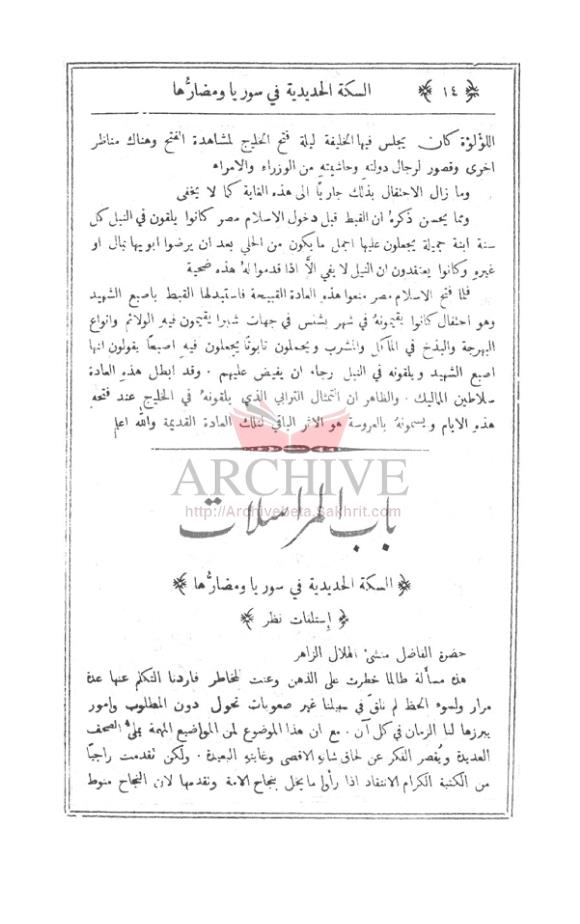 ﴿ ١٤ ﴾ السكة الحديدية في سوريا ومضارُّها
اللؤلؤة كان يجلس فيها الخليفة ليلة فتح الخليج لمشاهدة الفتح وهناك مناظر
اخرى وقصور لرجال دولته وحاشيته من الوزراء والامراء
وما زال الاحتفال بذلك جاريًا الى هذه الغاية كما لا يخفى
ومما يحسن ذكره ان القبط قبل دخول الاسلام مصر كانوا يلقون في النيل كل
سنة ابنة جميلة يجعلون عليها اجمل ما يكون من الحلي بعد ان يرضوا ابويها بمال او
غيره وكانوا يعتقدون ان النيل لا يفي الَّا اذا قدموا لهُ هذه ضحية
فلما فتح الاسلام مصر منعوا هذه العادة القبيحة فاستبدلها القبط باصبع الشهيد
وهو احتفال كانوا يقيمونهُ في شهر بشنس في جهات شبرا يقيمون فيهِ الولائم وانواع
البهرجة والبذخ في المآكل والمشرب ويحملون تابوتًا يجعلون فيهِ اصبعًا يقولون انها
اصبع الشهيد ويلقونه في النيل رجاء ان يفيض عليهم . وقد ابطل هذه العادة
سلاطين المماليك . والظاهر ان التمثال الترابي الذي يلقونهُ في الخليج عند فتحهِ
هذه الايام ويسمونهُ بالعروسة هو الاثر الباقي لتلك العادة القديمة والله اعلم
ARCHIVE
http://Archivebeta.Sakhrit.com
باب المراسلات
﴿ السكة الحديدية في سوريا ومضارُّها ﴾
﴿ إستلفات نظر ﴾
حضرة الفاضل منشئ الهلال الزاهر
هذه مسألة طالما خطرت على الذهن وعنت للخاطر فاردنا التكلم عنها عدة
مرار ولسوء الحظ لم نلقَ في سبيلنا غير صعوبات تحول دون المطلوب وامور
يبرزها لنا الزمان في كل آن . مع ان هذا الموضوع لمن المواضيع المهمة يملئ الصحف
العديدة ويُقصر الفكر عن لحاق شانهِ الاقصى وغايتهِ البعيدة . ولكن تقدمت راجيًا
من الكتبة الكرام الانتقاد اذا رأوا ما يخل بنجاح الامة وتقدمها لان النجاح منوط